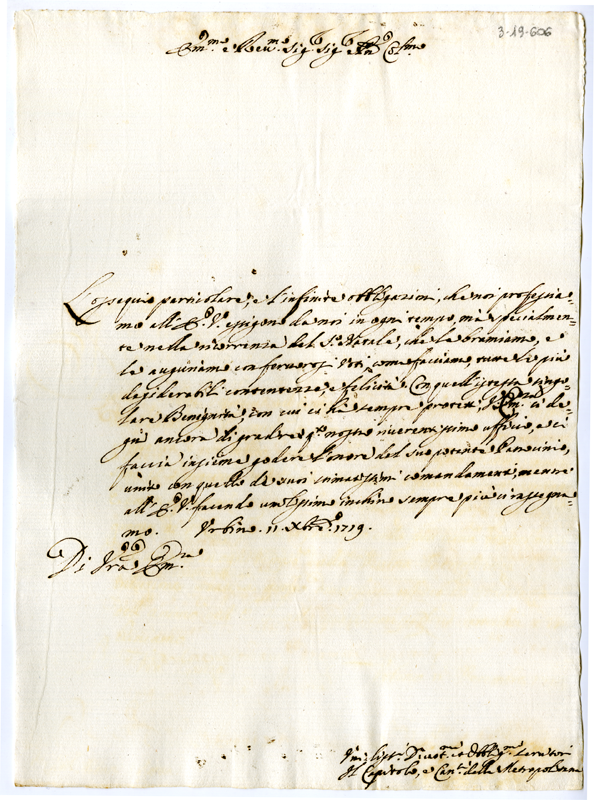 3-19-606
Em.mo e Rev.mo Sig.r Sig.r
L'ossequio particolare, e l'infinite obbligazioni, che noi professia=
mo all'E.V. esigono da noi in ogni tempo, mà specialmen=
te nella ricorrenza del S.o Natale, che le bramiamo, e
le auguriamo con fervorosi Voti, come facciamo, tutte le più
desiderabili contentezze, e felicità. Con quell'istessa singo=
lare Benignità, con cui ci hà sempre protetti, V.Em.za si de=
gni ancora di gradire q.to nostro riverentissimo uffizio, e ci
faccia insieme godere l'onore del suo potente Patrocinio,
unito con quello de suoi stimatissimi comandamenti, mentre
all'E.V. facendo umilissimo inchino sempre più ci rassegnia=
mo. Urbino. 11. Xbre. 1719.
Di Vra Em.za
Um.i Devot.i et Obblig.i Servitori
Il Capitolo, e Can.ci della Metropolitana